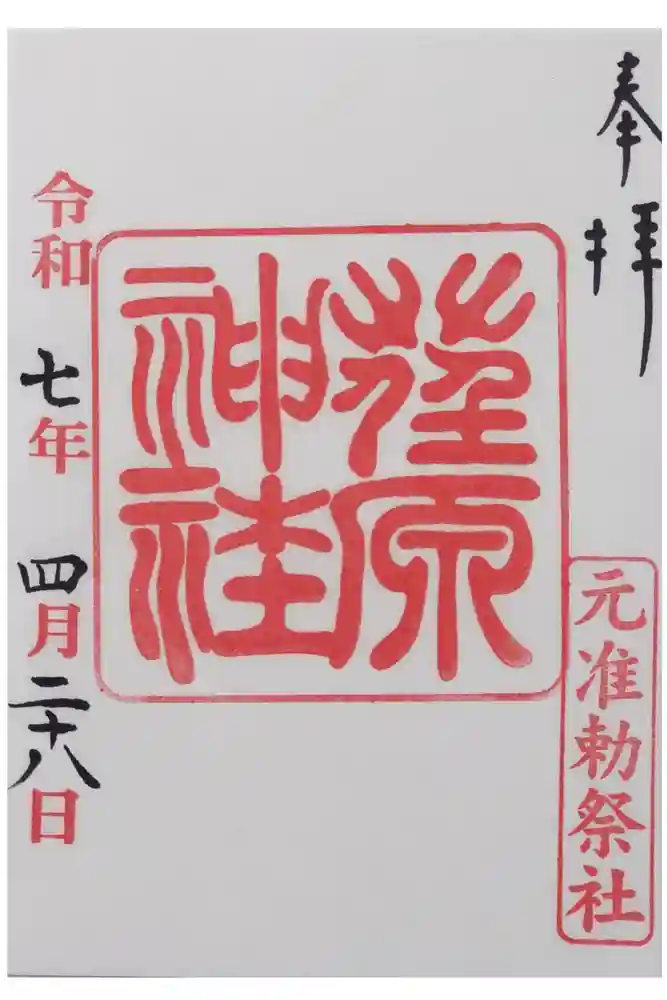 奉拝
元准勅祭社
荏原
神社
令和七年四月二十八日